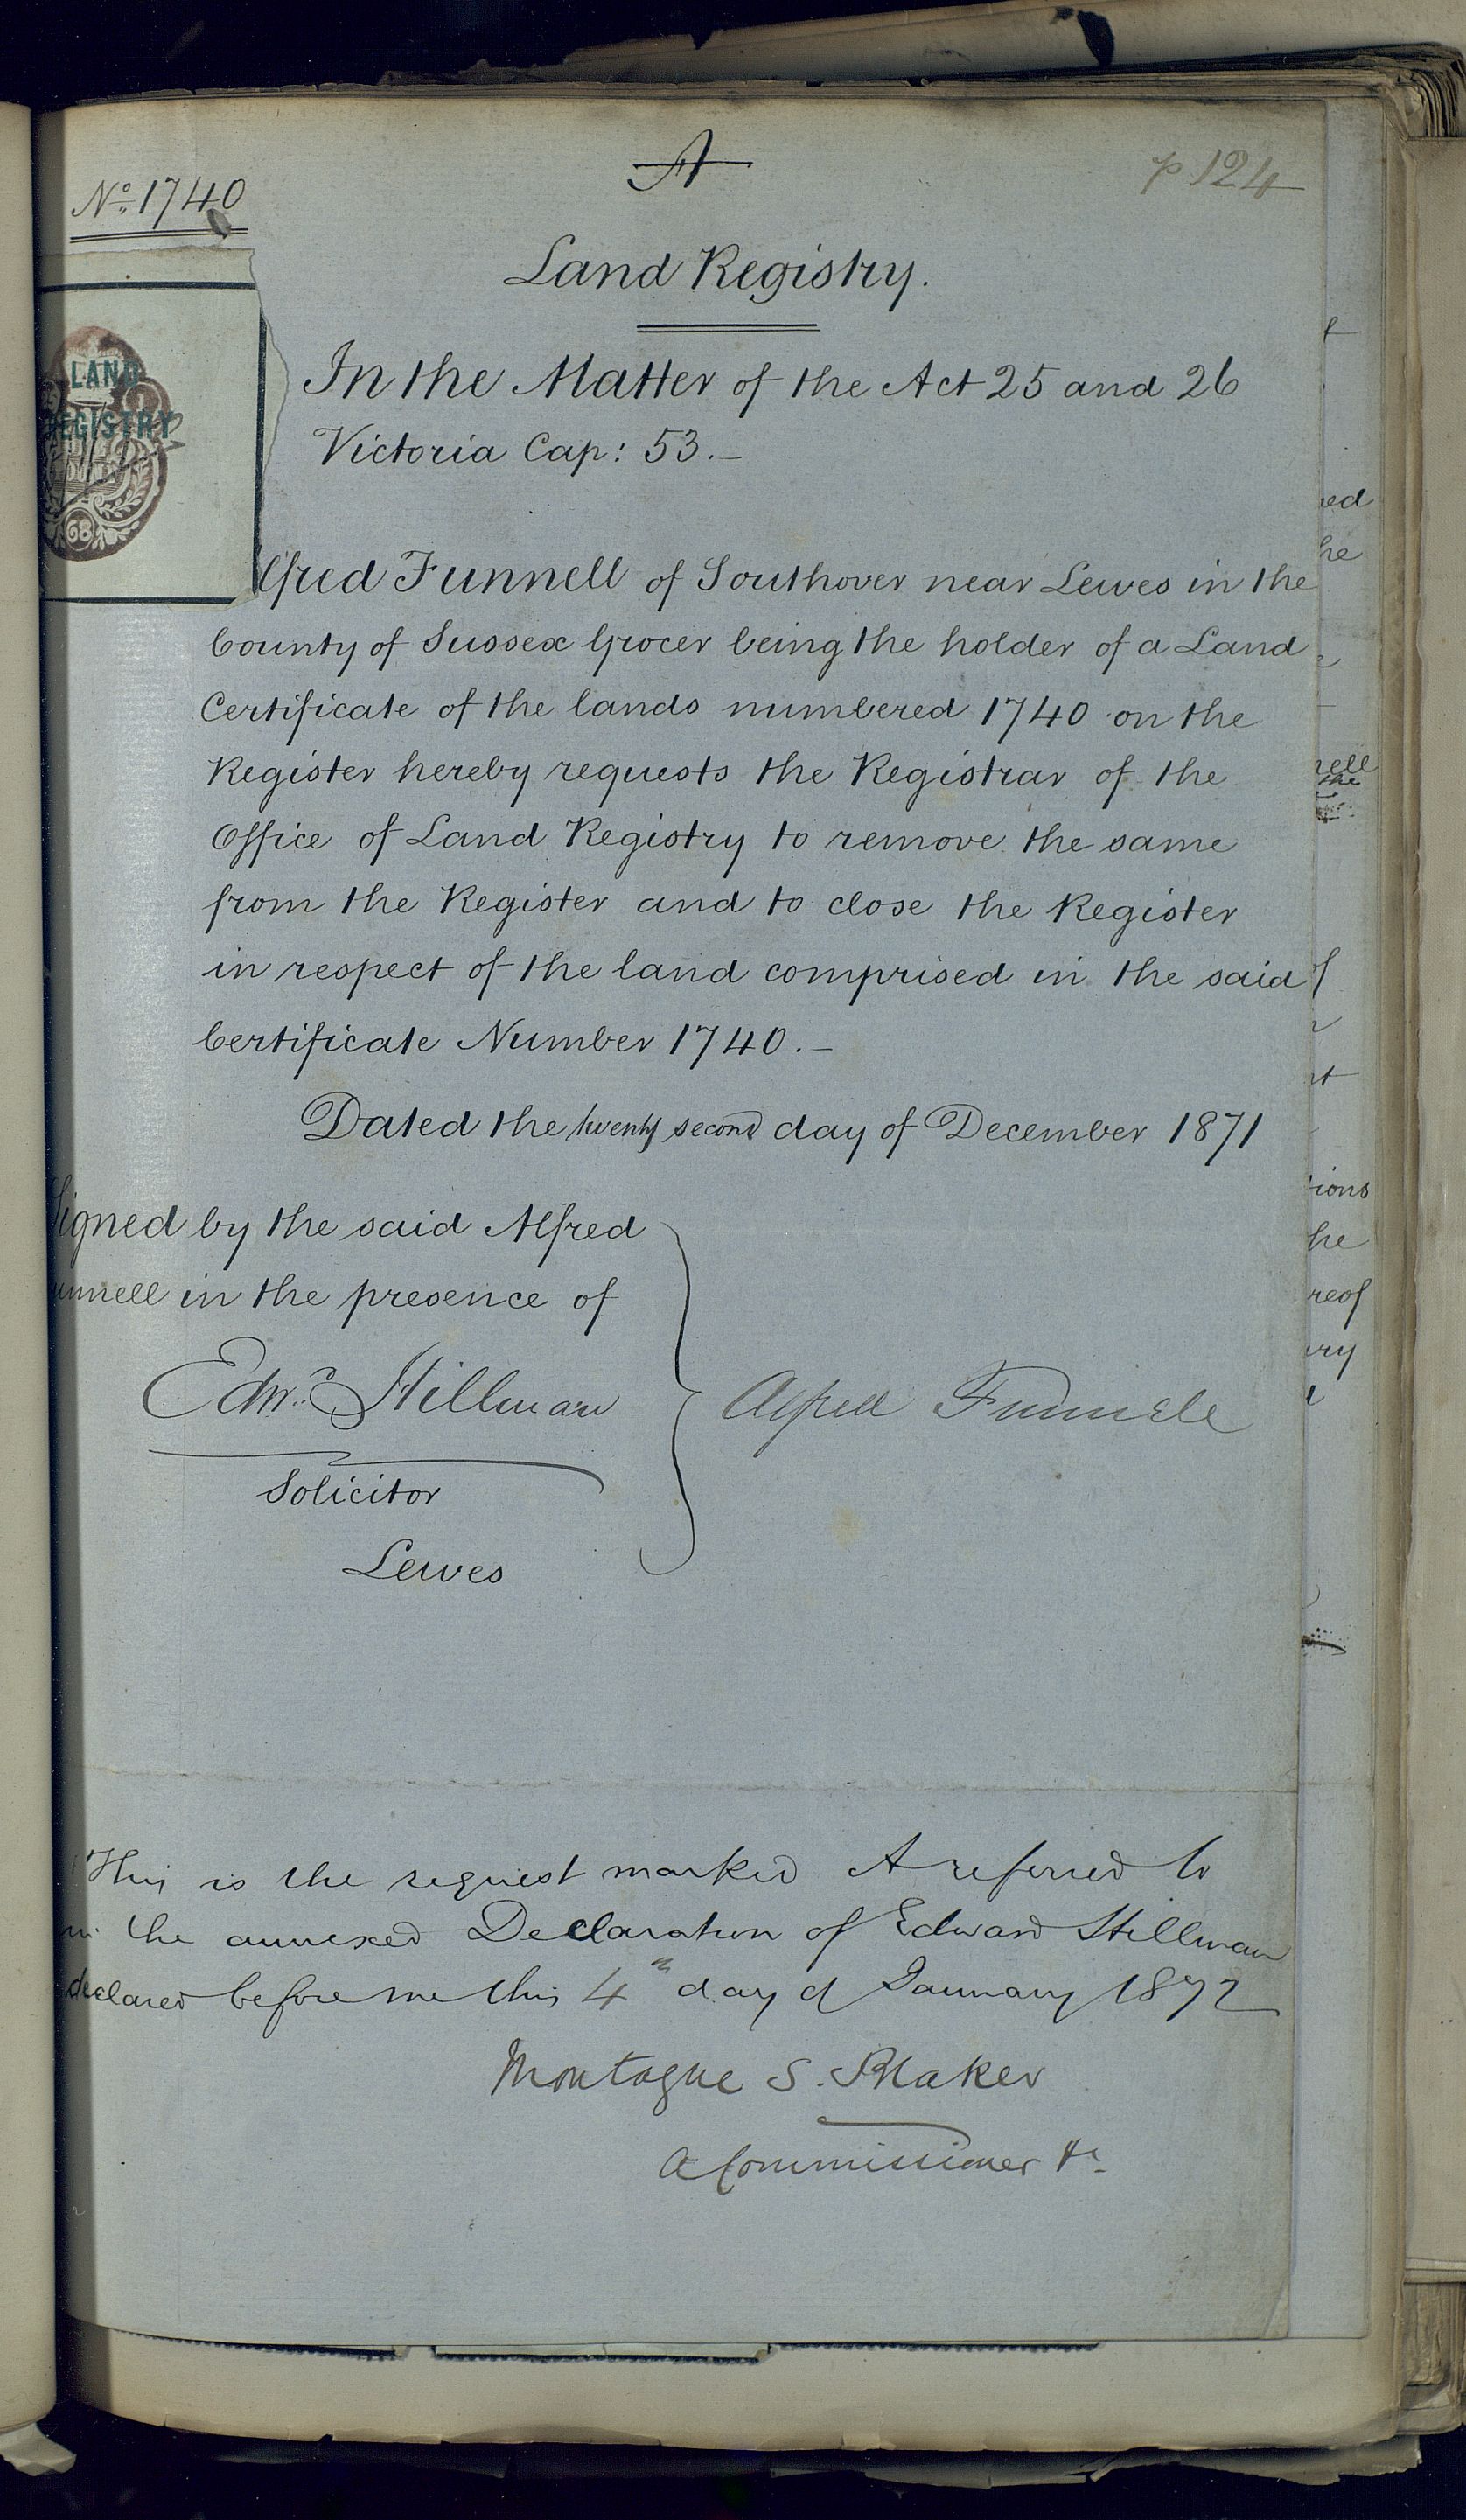 A
p 124
No. 1740
Land Registry.
LAND
REGISTRY
68
In the Matter of the Act 25 and 26
Victoria Cap: 53.—
lfred Funnell of Southover near Lewes in the
County of Sussex Grocer being the holder of a Land
Certificate of the lands numbered 1740 on the
Register hereby requests the Registrar of the
Office of Land Registry to remove the same
from the Register and to close the Register
in respect of the land comprised in the said
Certificate Number 1740.—
Dated the twenty second day of December 1871
Signed by the said Alfred
unnell in the presence of
Edwd. Hillman
Solicitor
Lewes
Alfred Funnell
This is the request marked A referred to
in the annexed Declaration of Edward Hillman
declared before me this 4th day of January 1872
Montague S. Blaker
A Commissioner &c